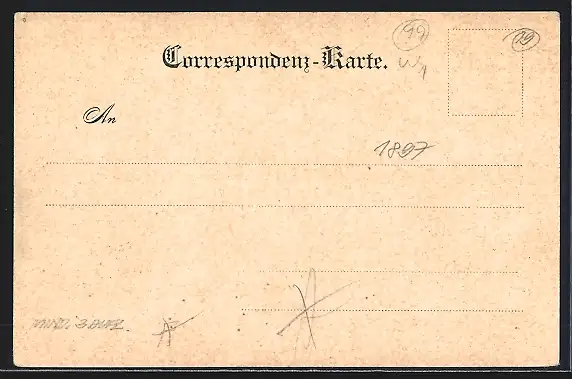 99 19
Correspondenz-Karte.
An
1897